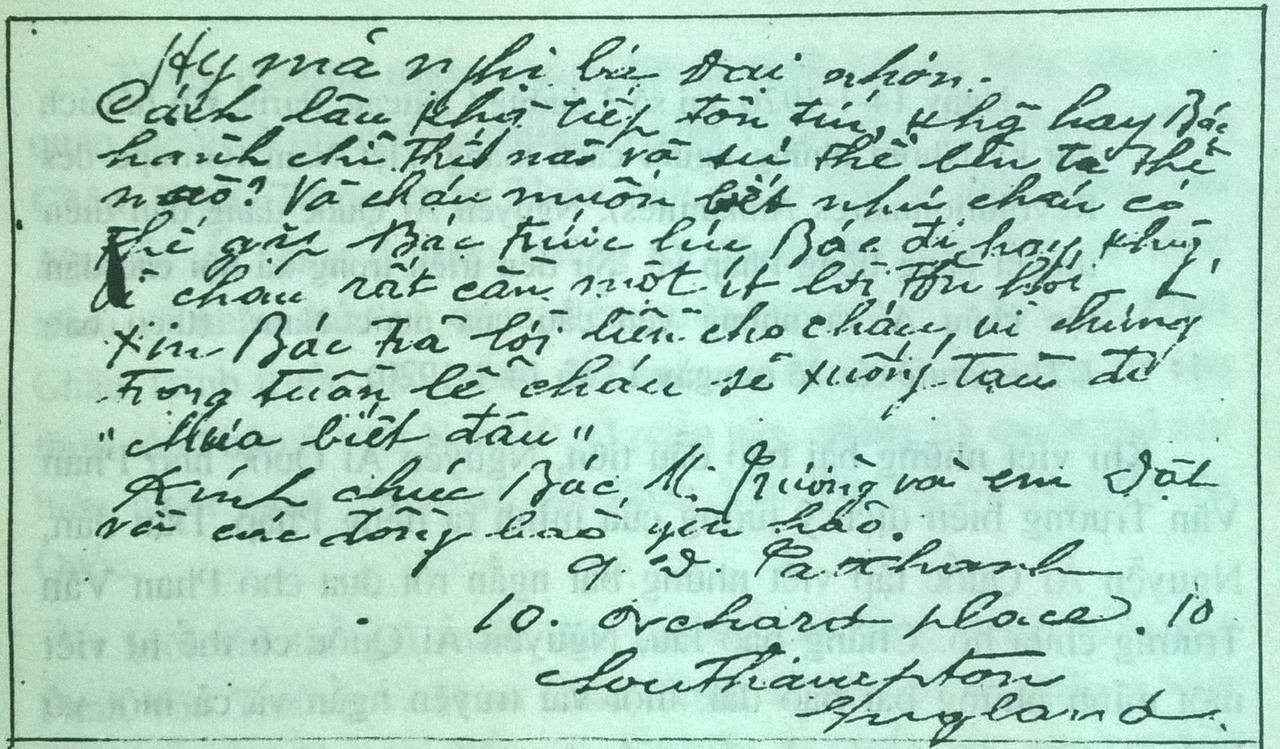 Hy mã nghi bá đại nhơn.
Cách lâu không tiếp tôn tín, khg hay Bác
hành chỉ thế nào và sự thể bên ta thế
nào? Và cháu muốn biết như cháu có
thể gởi Bác trước lúc Bác đi hay khg,
vì cháu rất cần một ít lời tôn hối
Xin Bác trả lời liền cho cháu, vì chừng
trong tuần lễ cháu sẽ xuống tàu đi
"chưa biết đâu"
Kính chúc Bác, M. Trường và em Dật
và các đồng bào yên hảo.
10. orchard place. 10
Southampton
England